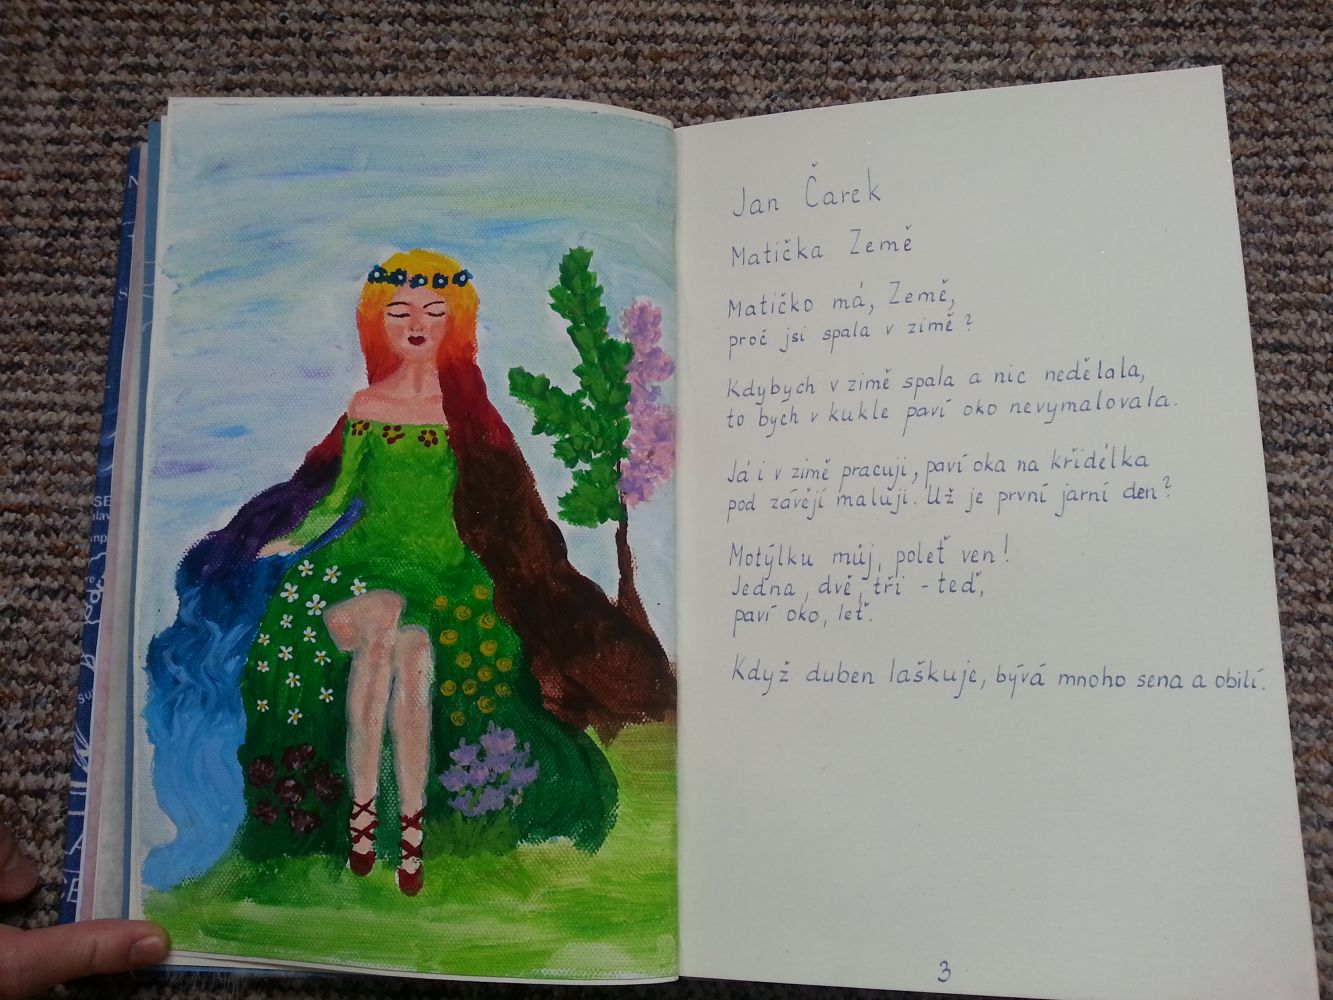 Jan Čarek
Matička Země
Matičko má, Země,
proč jsi spala v zimě?
Kdybych v zimě spala a nic nedělala,
to bych v kukle paví oko nevymalovala.
Já i v zimě pracuji, paví oka na křidélka
pod závějí maluji. Už je první jarní den?
Motýlku můj, poleť ven!
Jedna, dvě, tři - teď,
paví oko, leť.
Když duben laškuje, bývá mnoho sena a obilí.
3